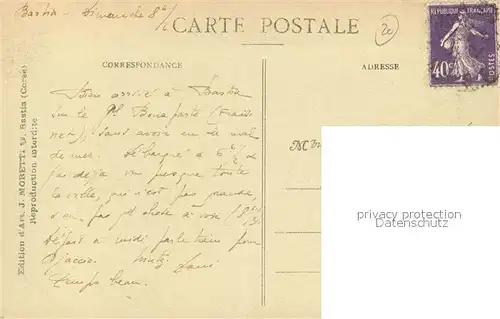 Bastia - Dimanche 8h 1/2
CARTE POSTALE
20
RÉPUBLIQUE FRANÇAISE
40c
POSTES
CORRESPONDANCE
ADRESSE
Edition d'Art. J. MORETTI, Bastia (Corse)
Reproduction interdite
Bien arrivé à Bastia
sur le Gl Bonaparte (Fraissi
net), sans avoir eu le mal
de mer. Débarqué à 6h 1/2 &
j'ai déjà vu presque toute
la ville, qui n'est pas grande,
pas gd chose à voir
Départ à midi par le train pour
Ajaccio.
Temps beau.
privacy protection
oldthing.de